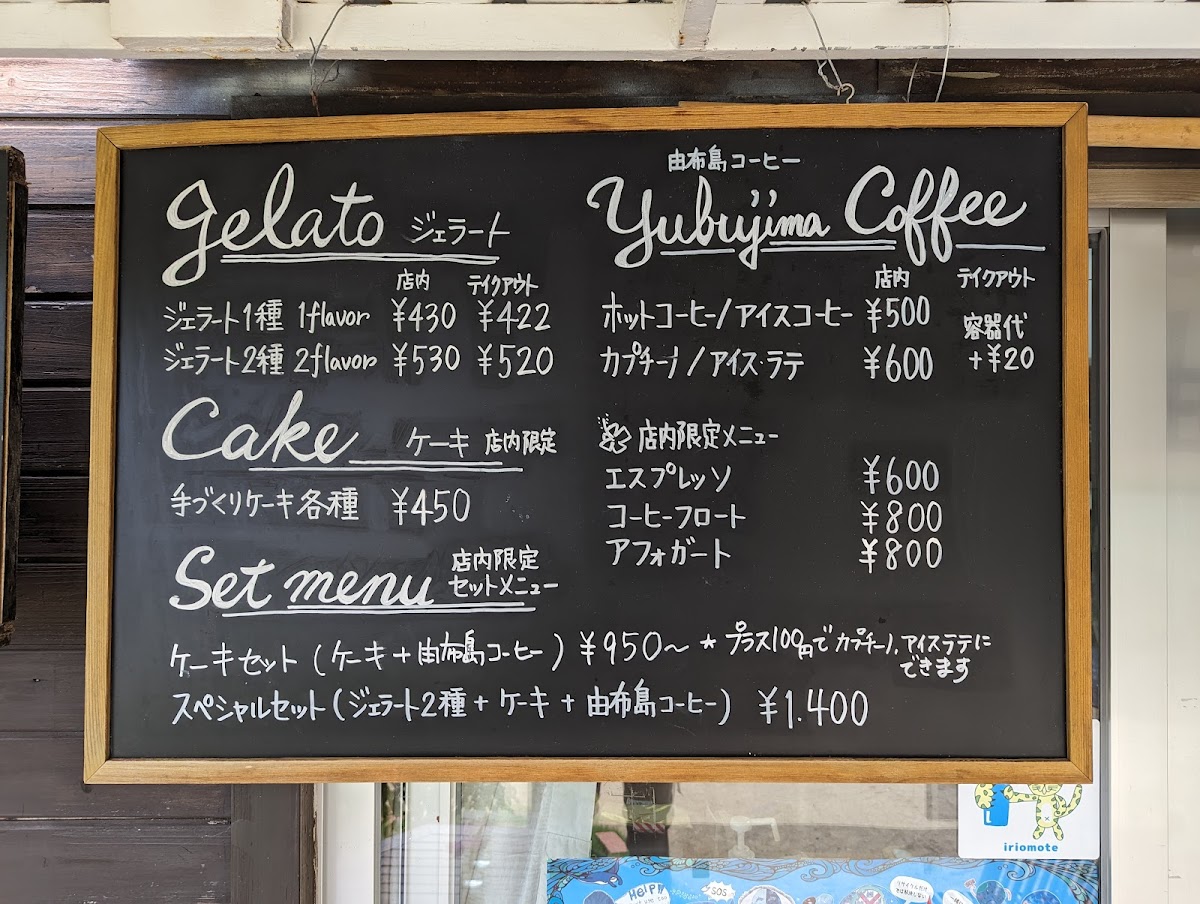 gelato ジェラート
店内 テイクアウト
ジェラート1種 1flavor ¥430 ¥422
ジェラート2種 2flavor ¥530 ¥520
Cake ケーキ 店内限定
手づくりケーキ各種 ¥450
Set menu 店内限定
セットメニュー
ケーキセット (ケーキ+由布島コーヒー) ¥950~ * プラス100円でカプチーノ、アイスラテに
できます
スペシャルセット (ジェラート2種 + ケーキ + 由布島コーヒー) ¥1.400
由布島コーヒー
Yubujima Coffee
店内 テイクアウト
ホットコーヒー/アイスコーヒー ¥500
カプチーノ/アイス・ラテ ¥600
容器代
+¥20
店内限定メニュー
エスプレッソ ¥600
コーヒーフロート ¥800
アフォガート ¥800
iriomote
HELP!!
SOS